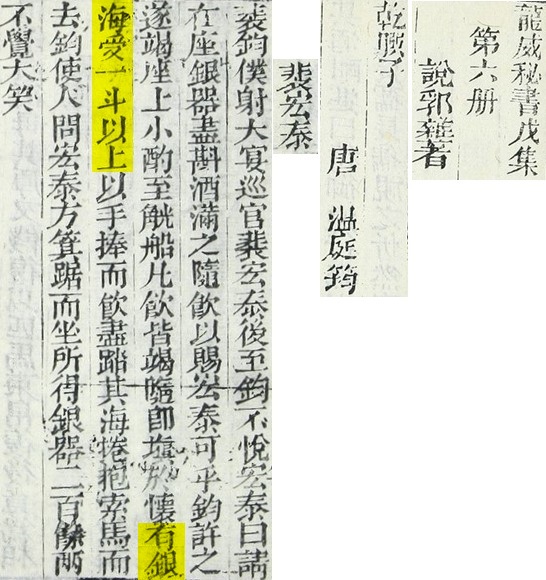 龍威秘書戊集
第六册
說郛雜著
乾𦠆子
唐 溫庭筠
裴宏泰
裴鈞僕射大宴巡官裴宏泰後至鈞不悅宏泰曰請
在座銀器盡斟酒滿之隨飲以賜宏泰可乎鈞許之
遂竭座上小酌至觥船凡飲皆竭隨即塡於懷有銀
海受一斗以上以手捧而飲盡踏其海捲抱索馬而
去鈞使人問宏泰方箕踞而坐所得銀器二百餘兩
不覺大笑